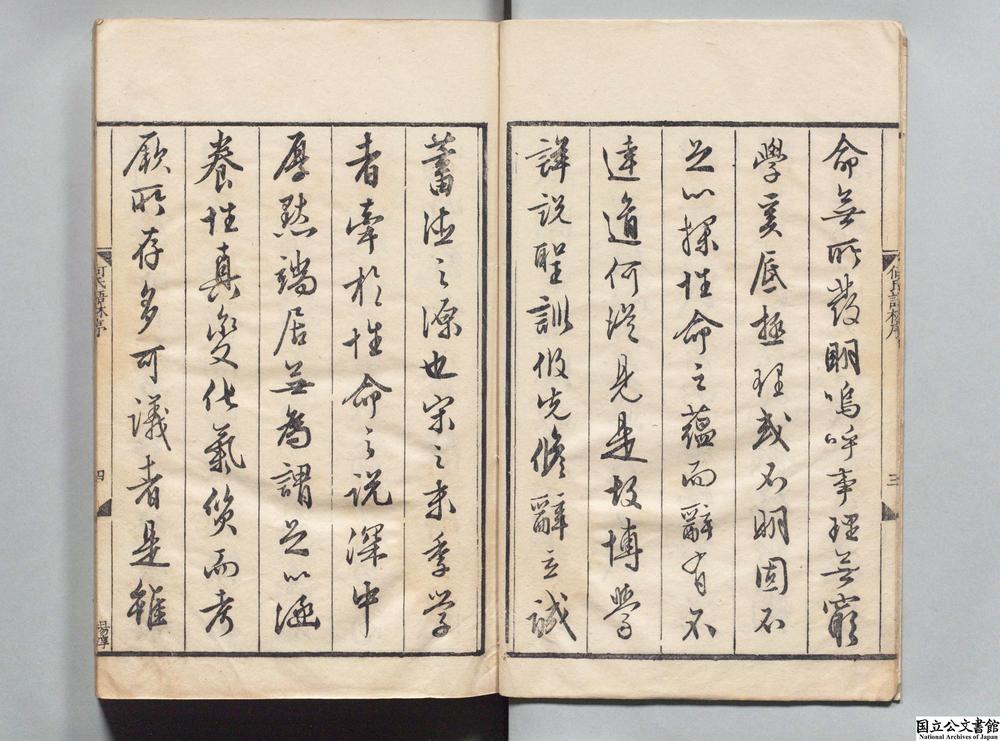 命無所發明嗚呼事理無窮
學奚底極理或不明固不
足以探性命之蘊而辭有不
達道何從見是故博學
詳說聖訓攸先脩辭立誠
何氏語林序 三
蓄德之源也宋之末季學
者牽於性命之說深中
厚默端居無為謂足以涵
養性真變化氣質而考
厥所存多可議者是雖
何氏語林序 四
国立公文書館
National Archives of Japan